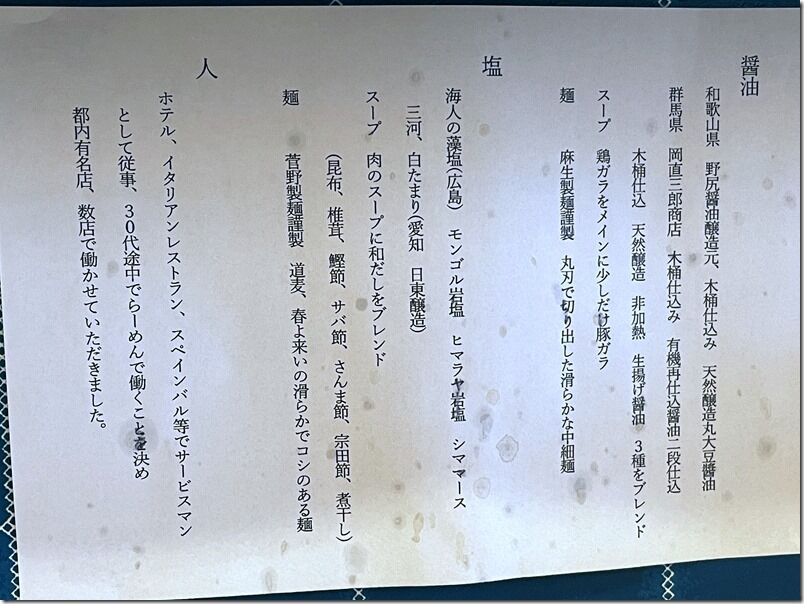 醤油
和歌山県 野尻醤油醸造元、木桶仕込み 天然醸造丸大豆醬油
群馬県 岡直三郎商店 木桶仕込み 有機再仕込醤油二段仕込
木桶仕込 天然醸造 非加熱 生揚げ醤油 3種をブレンド
スープ 鶏ガラをメインに少しだけ豚ガラ
麺 麻生製麺謹製 丸刃で切り出した滑らかな中細麺
塩
海人の藻塩(広島) モンゴル岩塩 ヒマラヤ岩塩 シママース
三河、白たまり(愛知 日東醸造)
スープ 肉のスープに和だしをブレンド
(昆布、椎茸、鰹節、サバ節、さんま節、宗田節、煮干し)
麺 菅野製麺謹製 道麦、春よ来いの滑らかでコシのある麺
人
ホテル、イタリアンレストラン、スペインバル等でサービスマン
として従事、30代途中でらーめんで働くことを決め
都内有名店、数店で働かせていただきました。